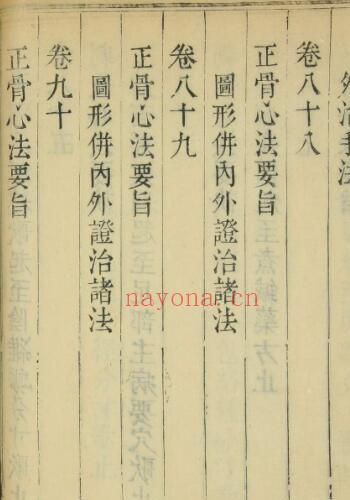 外治手法
卷八十八
正骨心法要旨
圖形併內外證治諸法
卷八十九
正骨心法要旨
圖形併內外證治諸法
卷九十
正骨心法要旨
nayona.cn